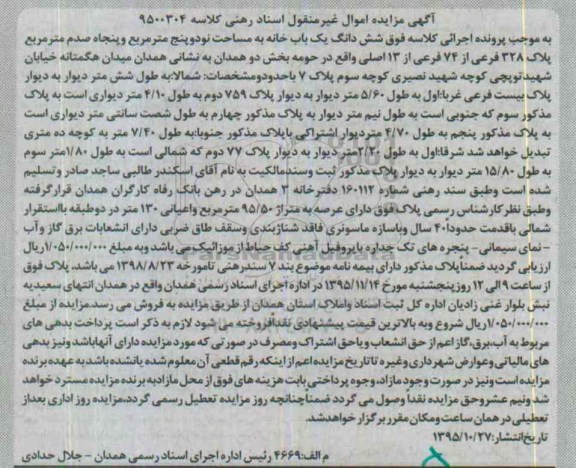 آگهی مزایده اموال غیرمنقول اسناد رهنی کلاسه ۹۵۰۰۳۰۴
به موجب پرونده اجرائی کلاسه فوق شش دانگ یک باب خانه به مساحت نودوپنج مترمربع وپنجاه صدم مترمربع
پلاک ۳۲۸ فرعی از ۷۴ فرعی از ۱۳ اصلی واقع در حومه بخش دو همدان به نشانی همدان میدان هگمتانه خیابان
شهیدتوپچی کوچه شهید نصیری کوچه سوم پلاک ۷ باحدودومشخصات: شمالا:به طول شش متر دیوار به دیوار
پلاک بیست فرعی غربا:اول به طول ۵/۶۰ متر دیوار به دیوار پلاک ۷۵۹ دوم به طول ۴/۱۰ متر دیواری است به پلاک
مذکور سوم که جنوبی است به طول نیم متر دیوار به پلاک مذکور چهارم به طول شصت سانتی متر دیواری است
به پلاک مذکور پنجم به طول ۴/۷۰ متردیوار اشتراکی باپلاک مذکور جنوبا:به طول ۷/۴۰ متر به کوچه ده متری
تبدیل خواهد شد شرقا:اول به طول ۲/۲۰متر دیوار به دیوار پلاک ۷۷ دوم که شمالی است به طول ۱/۸۰متر سوم
به طول ۱۵/۸۰ متر دیوار به دیوار پلاک مذکور ثبت وسندمالکیت به نام آقای اسکندر طالبی ساجد صادر وتسلیم
شده است وطبق سند رهنی شماره ۱۶۰۱۱۲ دفترخانه ۳ همدان در رهن بانک رفاه کارگران همدان قرارگرفته
وطبق نظر کارشناس رسمی پلاک فوق دارای عرصه به متراژ ۹۵/۵۰ مترمربع واعیانی ۱۳۰ متر در دوطبقه بااستقرار
شمالی باقدمت حدودا۴۰ سال وباسازه ماسونری فاقد شناژبندی وسقف طاق ضربی دارای انشعابات برق گاز وآب
- نمای سیمانی- پنجره های تک جداره باپروفیل آهنی کف حیاط از موزائیک می باشد وبه مبلغ ۱/۰۵۰/۰۰۰/۰۰۰ریال
ارزیابی گردید ضمناپلاک مذکور دارای بیمه نامه موضوع بند ۷ سندرهنی تامورخه ۱۳۹۸/۸/۲۳ می باشد. پلاک فوق
از ساعت ۹ الی ۱۲ روزپنجشنبه مورخ ۱۳۹۵/۱۱/۱۴ در اداره اجرای اسناد رسمی همدان واقع در همدان انتهای سعیدیه
نبش بلوار غنی زادیان اداره کل ثبت اسناد واملاک استان همدان از طریق مزایده به فروش می رسد.مزایده از مبلغ
۱/۰۵۰/۰۰۰/۰۰۰ریال شروع وبه بالاترین قیمت پیشنهادی نقدافروخته می شود لازم به ذکر است پرداخت بدهی های
مربوط به آب،برق،گاز اعم از حق انشعاب ویاحق اشتراک ومصرف در صورتی که مورد مزایده دارای آنهاباشد ونیز بدهی
های مالیاتی وعوارض شهرداری وغیره تاتاریخ مزایده اعم ازاینکه رقم قطعی آن معلوم شده یانشده باشد به عهده برنده
مزایده است ونیز در صورت وجود مازاد، وجوه پرداختی بابت هزینه های فوق از محل مازادبه برنده مزایده مسترد خواهد
شد ونیم عشروحق مزایده نقدا وصول می گردد ضمناچنانچه روز مزایده تعطیل رسمی گردد،مزایده روز اداری بعداز
تعطیلی در همان ساعت ومکان مقرر برگزار خواهدشد.
تاریخ انتشار:۱۳۹۵/۱۰/۲۷
م الف:۴۶۶۹ رئیس اداره اجرای اسناد رسمی همدان - جلال حدادی